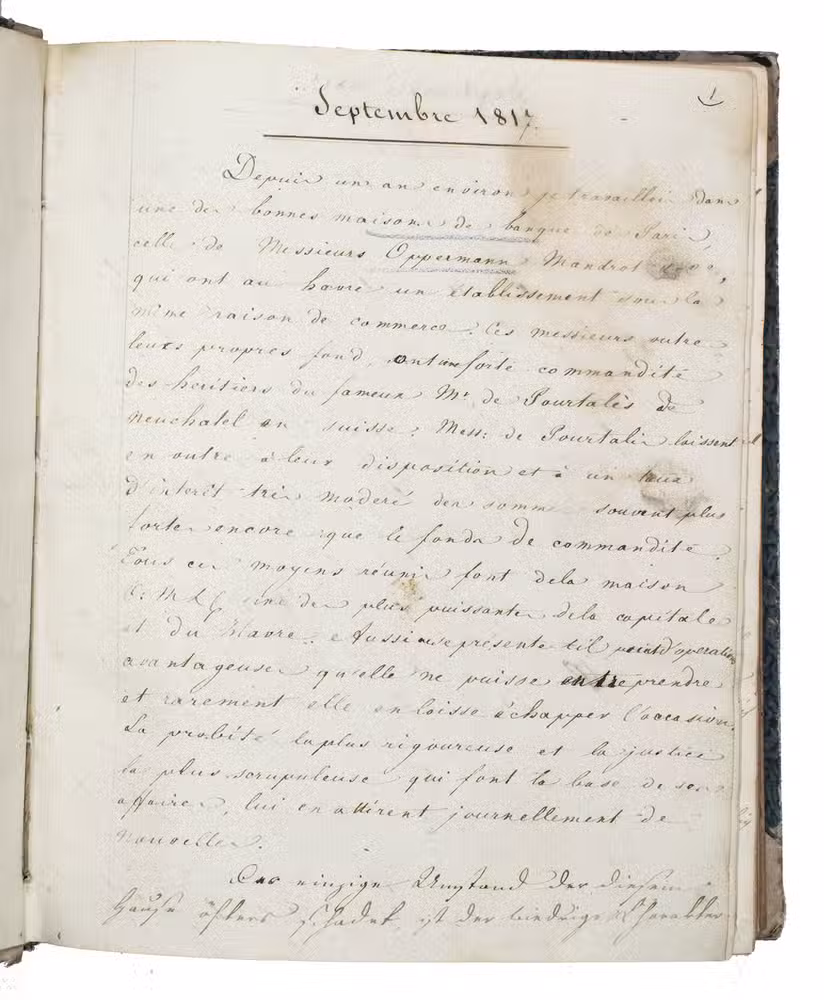 1
Septembre 1817.
Depuis un an environ je travaille dans
une des bonnes maisons de banque de Paris,
celle de Messieurs Oppermann Mandrot
qui ont au havre un établissement sous la
même raison de commerce. Ces messieurs outre
leurs propres fonds, ont une forte commandite
des heritiers du fameux Mr. de Pourtalès de
Neuchatel en suisse. Mess: de Pourtalès laissent
en outre à leur disposition et à un taux
d'interêt très moderé des sommes souvent plus
fortes encore que le fonds de commandite.
Tous ces moyens réunis font dela maison
O. M & C, une des plus puissantes dela capitale
et du Havre. Aussi ne se présente til point d'operation
avantageuse qu'elle ne puisse entreprendre
et rarement elle en laisse échapper l'occasion.
La probité la plus rigoureuse et la justice
la plus scrupuleuse qui font la base de ses
affaires, lui en attirent journellement de
nouvelles.
Der einzige Umstand der diesem
Hause öfters schadet, ist der niedrige Charakter